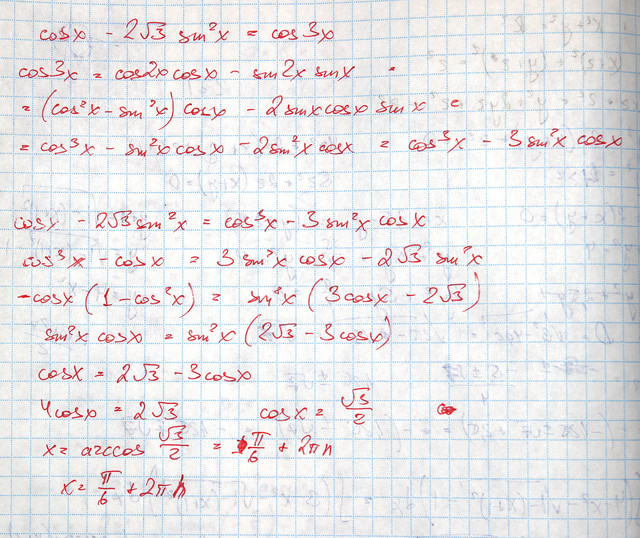 cosx - 2√3 sin²x = cos3x
cos3x = cos2x cosx - sin2x sinx =
= (cos²x - sin²x) cosx - 2sinx cosx sinx =
= cos³x - sin²x cosx - 2sin²x cosx = cos³x - 3sin²x cosx
cosx - 2√3 sin²x = cos³x - 3sin²x cosx
cos³x - cosx = 3sin²x cosx - 2√3 sin²x
-cosx (1 - cos²x) = sin²x (3cosx - 2√3)
sin²x cosx = sin²x (2√3 - 3cosx)
cosx = 2√3 - 3cosx
4cosx = 2√3 cosx = √3/2
x = arccos √3/2 = ±π/6 + 2πn
x = π/6 + 2πn